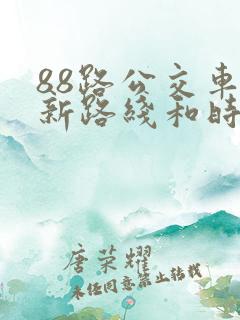 88路公交车
新路线和时
唐荣耀
未经同意禁止转载